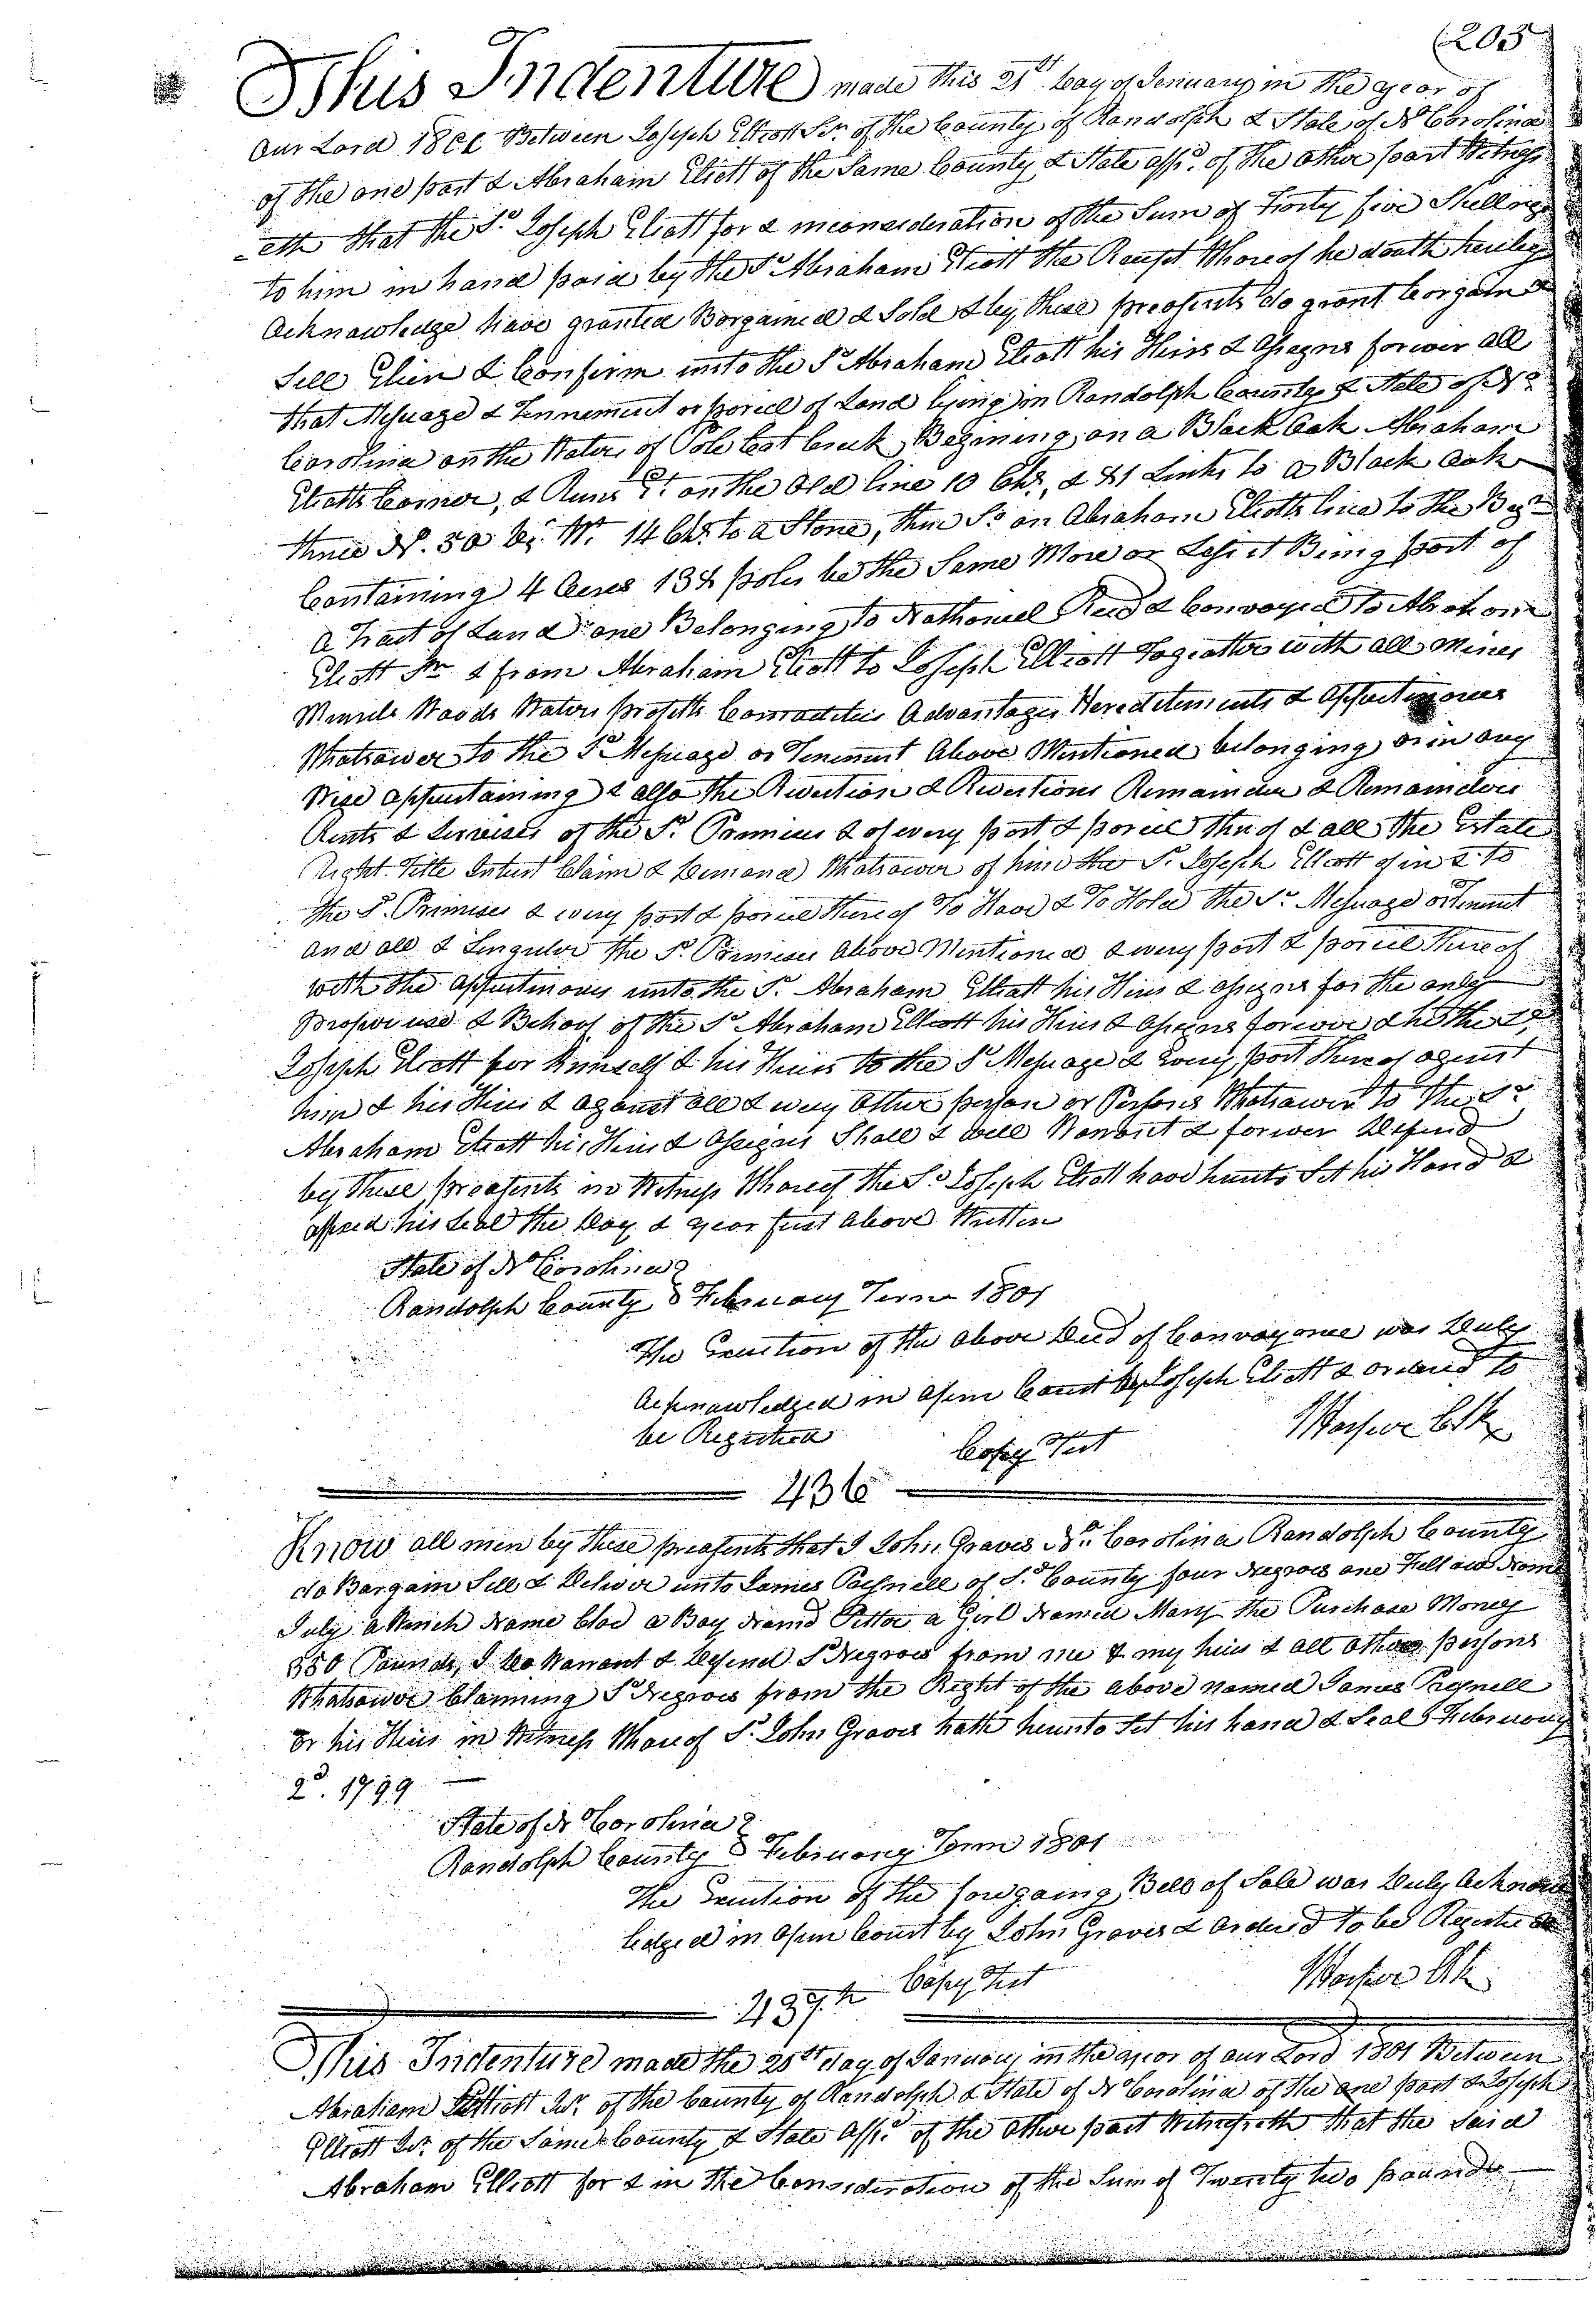 (205
This Indenture made this 21st day of January in the year of
our Lord 180 Between Joseph Elliott Sr. of the County of Randolph & State of No Carolina
of the one part & Abraham Eliott of the Same County & State affd. of the other part Witness
-eth that the Sd. Joseph Eliott for & inconsideration of the Sum of Forty five Shillings
to him in hand paid by the Sd Abraham Eliott the Receipt Whoreof he doath hereby
Acknowledge have granted Borgained & Sold & by these preasents do grant borgain &
Sell Elien & Confirm unto the Sd Abraham Eliott his Heirs & Assegns forever all
that Messuage & Tennement or porcel of Land lying in Randolph County & State of No
Carolina on the Waters of Pole Cat Creek, Begining on a Black Oak Abraham
Eliotts Corner, & Runs Et. on the Old line 10 Chs., & 81 Links to a Black Oak
thence N. 50 Ds. Wt. 14 Chs. to a Stone, thence So. on Abraham Eliotts line to the Beg
Containing 4 Acres 134 poles be the Same More or Less it Being part of
a Tract of Land one Belonging to Nathaniel Reed & Convoyed to Abraham
Eliott Sr & from Abraham Eliott to Joseph Elliott Togeather with all Mines
Minerls Woods Waters profitts Commodities Advantages Hereditements & Appurtinances
Whatsoever to the Sd Messuage or Teniment Above Mentioned belonging or in any
Wise appurtaining & also the Revertion & Revertions Remainder & Remainders
Rents & Services of the Sd. Premises & of every part & porcel thereof & all the Estate
Right Title Interest Claim & Demand Whatsoever of him the Sd. Joseph Elliott of in & to
the Sd. Primises & every part & porcel thereof To Have & To Hold the Sd. Messuage or Teniment
and all & Singulor the Sd. Primeses above Mentioned & every part & porcel thereof
with the appurtinances unto the Sd. Abraham Elliott his Heirs & assegns for the only
propor use & Behoof of the Sd Abraham Elliott his Heirs & Assegns forever & he the Sd
Joseph Eliott for himself & his Heirs to the Sd Messuage & every part thereof against
him & his Heirs & against all & every other person or Persons Whatsoever to the Sd
Abraham Eliott his Heirs & Assegns Shall & will Warrant & forever Defend
by these preasents in Witness Whoreof the Sd. Joseph Eliott have hereunto Set his Hand &
affixed his Seal the Day & year first above Written
State of No Carolina
Randolph County February Term 1801
The Execution of the above Deed of Convoyance was Duly
Acknowledged in open Court by Joseph Eliott & ordered to
be Registered
Copy Test
Harper Clk
436
Know all men by these preasents that I John Graves No. Carolina Randolph County
do Bargain Sell & Deliver unto James Pegnell of Sd. County four Negroes one Fellow Name
July a Winch Name Cloe a Boy Named Petter a Girl Named Mary the Purchase Money
350 Pounds, I do Warrant & Defend Sd Negroes from me & my heirs & all other persons
Whatsoever Claiming Sd Negroes from the Right of the above Named James Pegnell
or his Heirs in Witness Whoreof Sd. John Graves hath hereunto Set his hand & Seal February
2d. 1799
State of No Carolina
Randolph County February Term 1801
The Execution of the foregoing Bill of Sale was Duly Acknow
ledged in open Court by John Graves & ordered to be Registered
Copy Test
Harper Clk
437th
This Indenture made the 28th day of January in the year of our Lord 1801 Between
Abraham Elliott Sr. of the County of Randolph & State of No Carolina of the one part & Joseph
Elliott Sr. of the Same County & State Affd. of the other part Witnesseth that the Said
Abraham Elliott for & in the Consideration of the Sum of Twenty two pounds